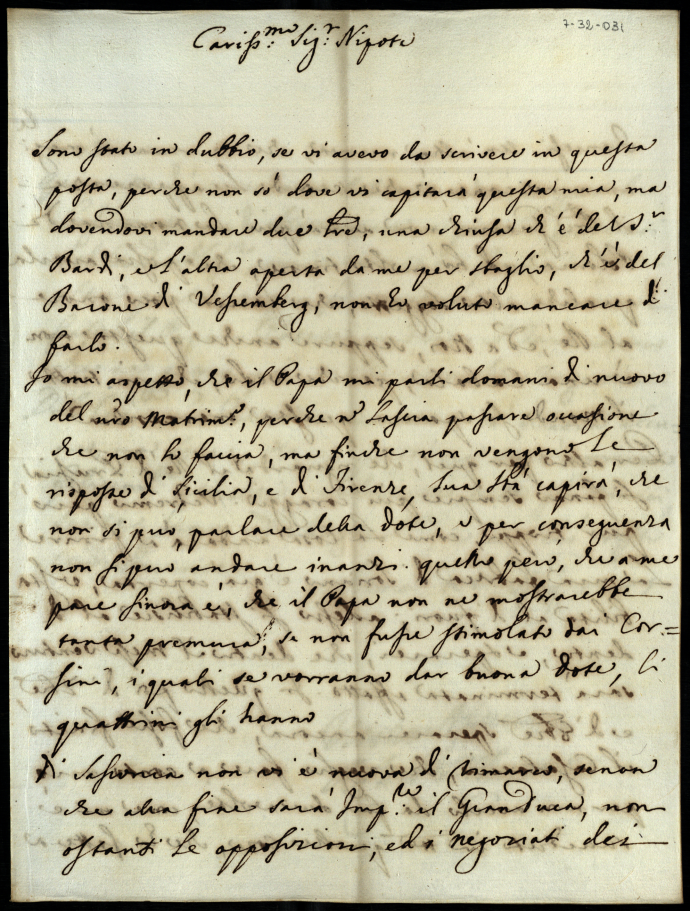 7-32-031
Cariss.mo Sig.r Nipote
Sono stato in dubbio, se vi avevo da scrivere in questa
posta, perche non só dove vi capitará questa mia, ma
dovendovi mandare due lre, una chiusa ch'é del S.r
Bardi, e l'altra aperta da me per sbaglio, ch'é del
Barone di Vessemberg, non hò voluto mancare di
farlo.
Io mi aspetto, che il Papa mi parli domani di nuovo
del nro Matrim.o, perche n lascia passare occasione
che non lo faccia, ma finche non vengono le
risposte di Sicilia, e di Firenze, Sua Stá capirá, che
non si puó parlare della dote, e per conseguenza
non si puó andare inanzi. quello peró, che a me
pare sinora é, che il Papa non ne mostrarebbe
tanta premura, se non fusse stimolato dai Cor=
sini, i quali se vorranno dar buona dote, li
quattrini gli hanno
Di non vi é nuova di rimarco, senon
che alla fine sará Imp.re il Granduca, non
ostanti le opposizioni, ed i negoziati dei